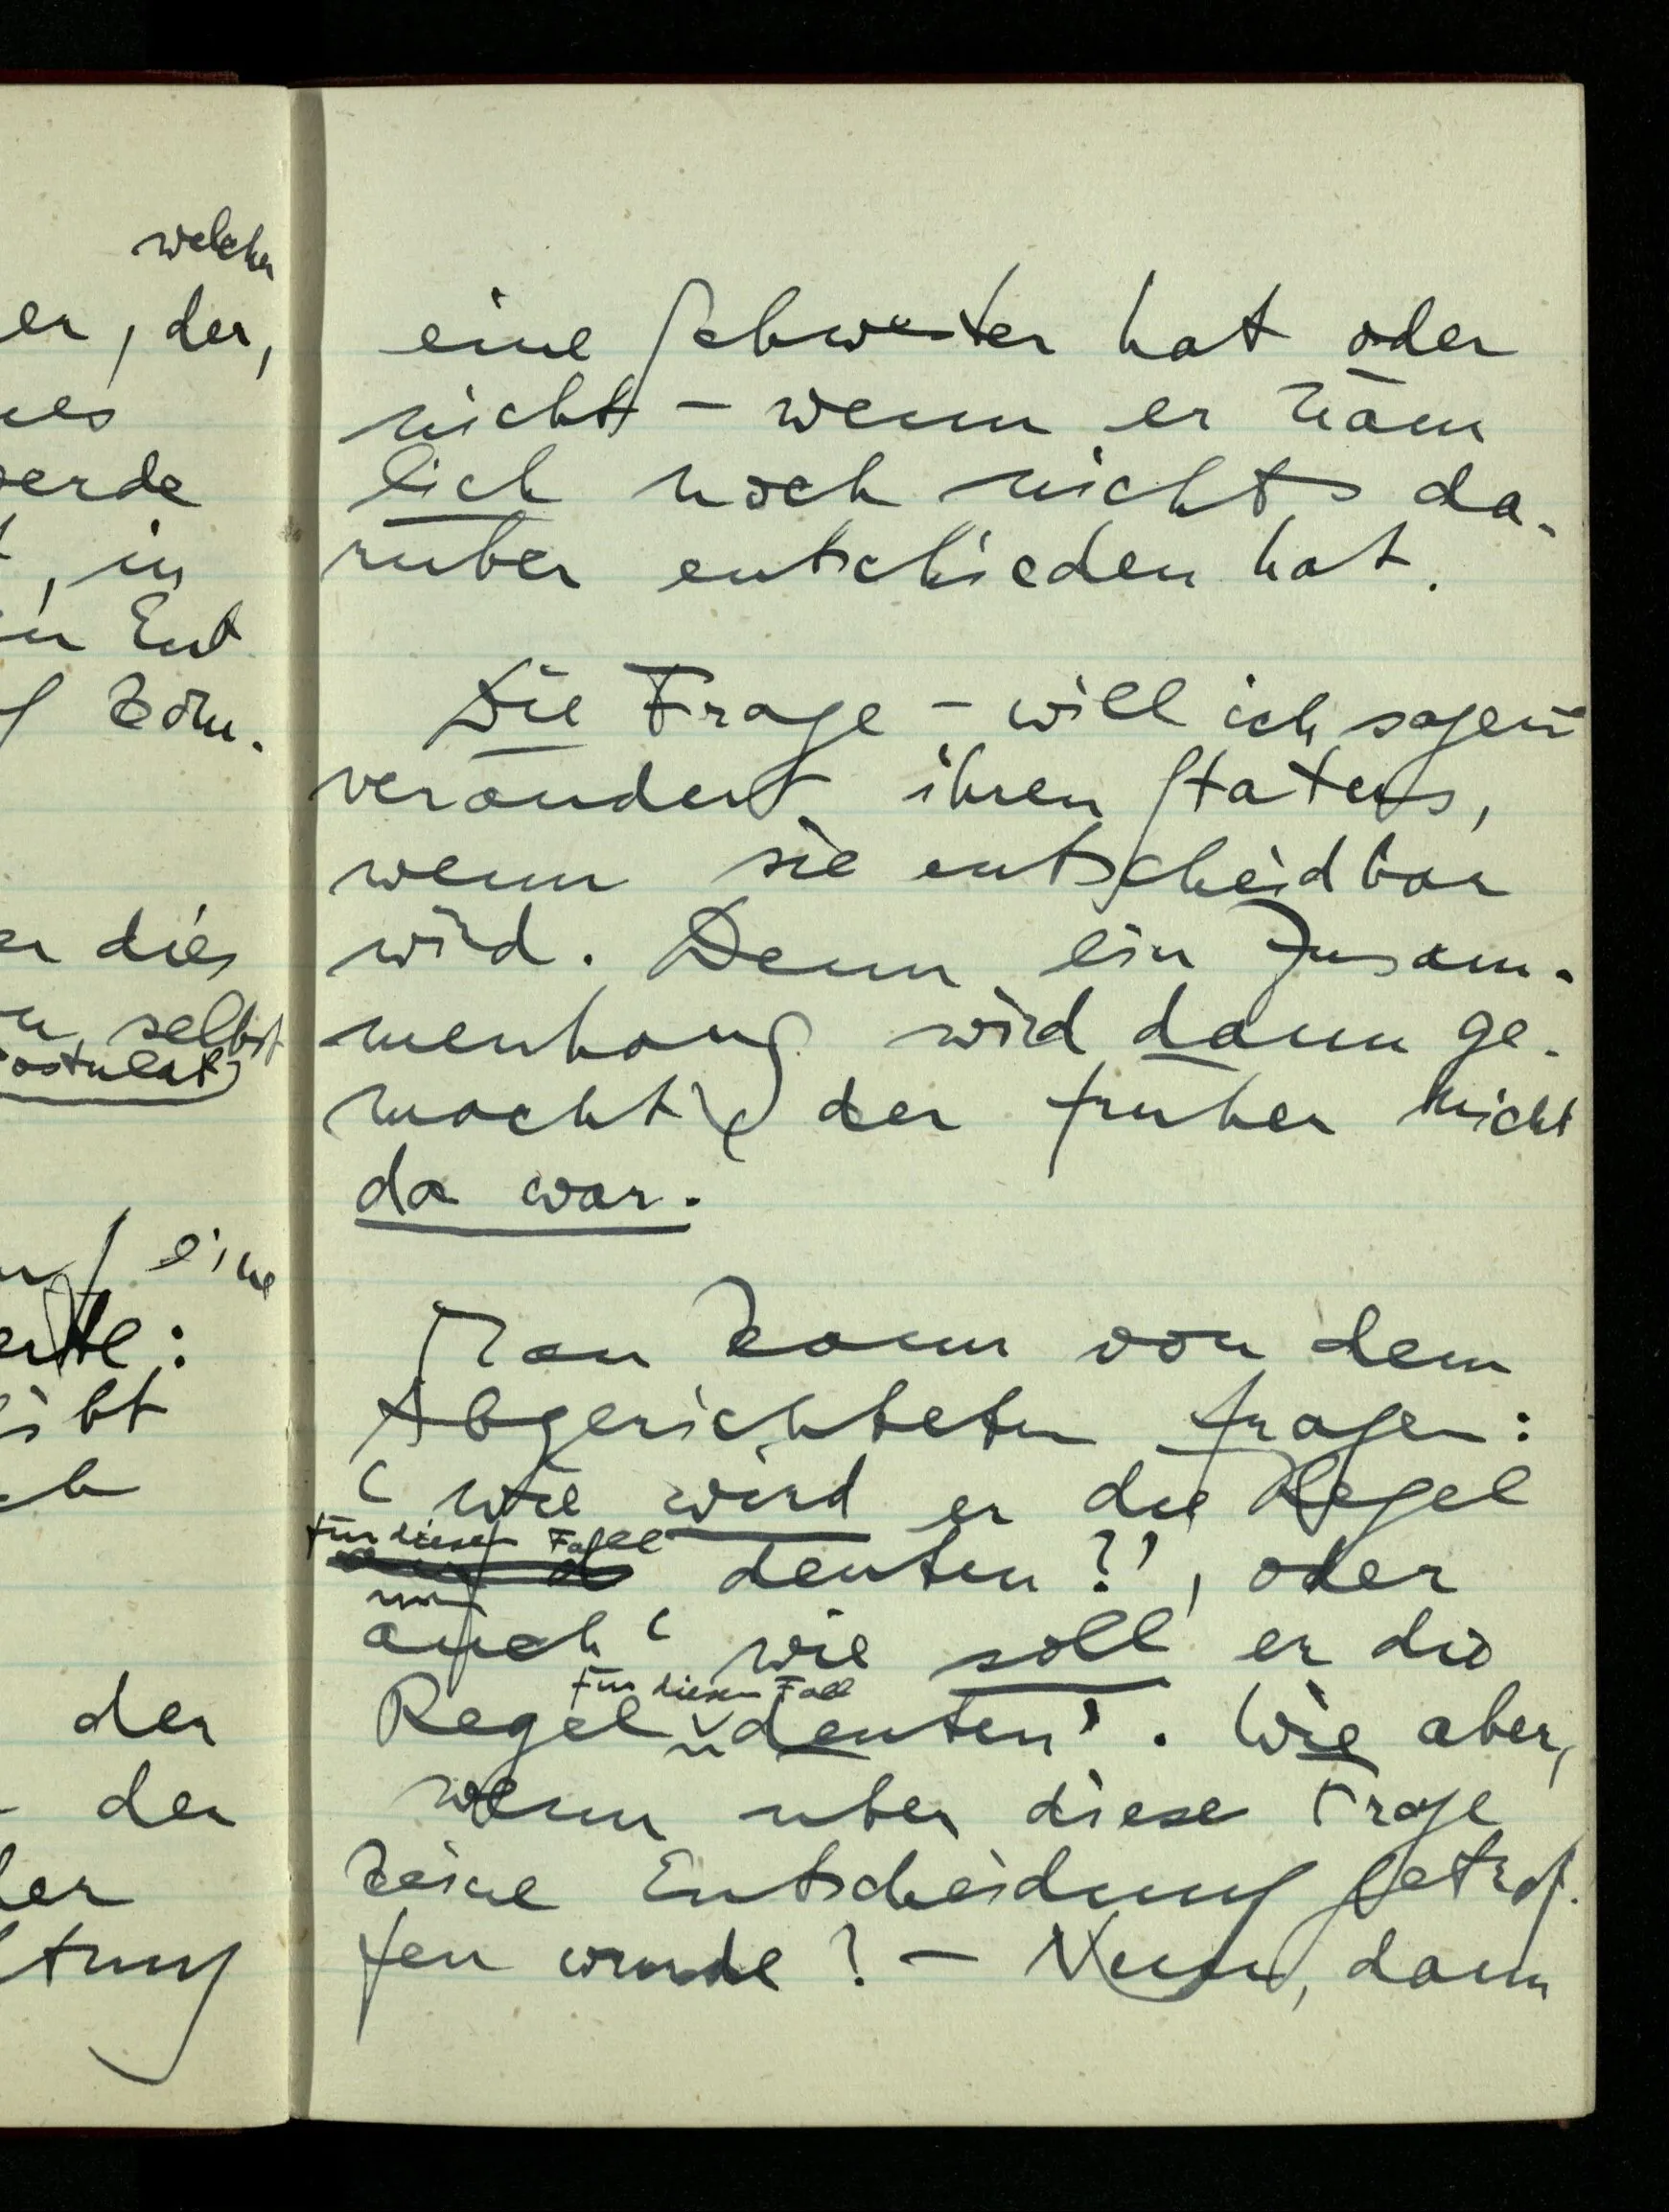 welcher
er, der,
nes
werde
, in
Ent
köm.
er dies
selbst
Postulat)
auf eine
gibt
der
der
eine Schwester hat oder
nicht – wenn er näm
lich noch nichts da-
rüber entschieden hat.
Die Frage – will ich sagen –
verändert ihren Status,
wenn sie entscheidbar
wird. Denn ein Zusam-
menhang wird dann ge-
macht, der früher nicht
da war.
Man kann von dem
Abgerichteten fragen:
‘Wie wird er die Regel
für diesen Fall
deuten?’, oder
auch ‘wie soll er die
für diesen Fall
Regel deuten’. Wie aber,
wenn über diese Frage
keine Entscheidung getrof-
fen wurde? – Nun, dann